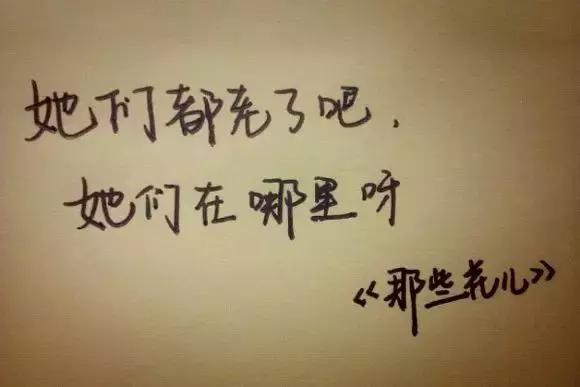 她们都老了吧，
她们在哪里呀
《那些花儿》